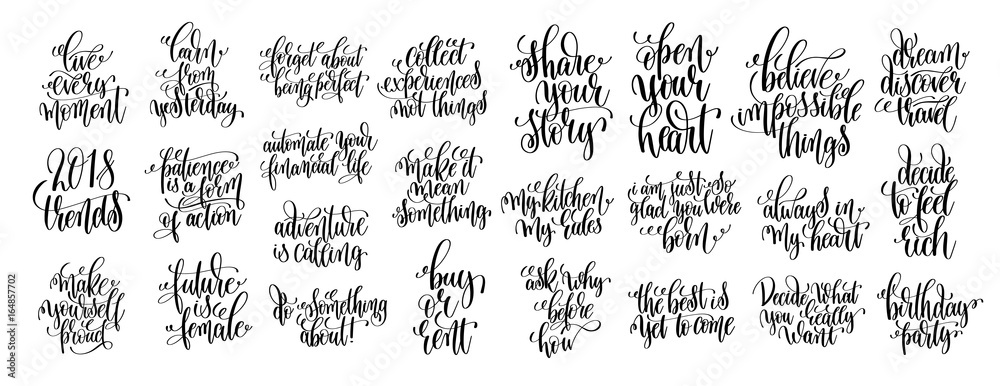 live
every
moment
learn
from
yesterday
forget about
being perfect
collect
experiences
not things
share
your
story
open
your
heart
believe
impossible
things
dream
discover
travel
2018
trends
patience
is a form
of action
automate your
financial life
make it
mean
something
my kitchen
my rules
i am just so
glad you were
born
always in
my heart
decide
to feel
rich
adventure
is calling
make
yourself
proud
future
is
female
do something
about!
buy
or
rent
ask why
before
how
the best is
yet to come
Decide what
you really
want
birthday
party
Adobe Stock | #164857702